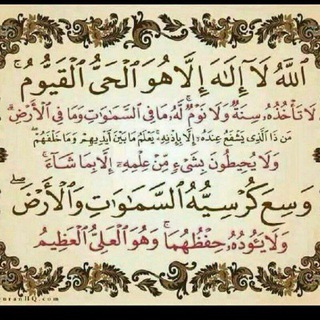 ٱللَّهُ لَآ إِلَـٰهَ إِلَّا هُوَ ٱلْحَىُّ ٱلْقَيُّومُ ۚ
لَا تَأْخُذُهُۥ سِنَةٌ وَلَا نَوْمٌ ۚ لَّهُۥ مَا فِى ٱلسَّمَـٰوَٰتِ وَمَا فِى ٱلْأَرْضِ ۗ
مَن ذَا ٱلَّذِى يَشْفَعُ عِندَهُۥٓ إِلَّا بِإِذْنِهِۦ ۚ يَعْلَمُ مَا بَيْنَ أَيْدِيهِمْ وَمَا خَلْفَهُمْ ۖ
وَلَا يُحِيطُونَ بِشَىْءٍ مِّنْ عِلْمِهِۦٓ إِلَّا بِمَا شَآءَ ۚ
وَسِعَ كُرْسِيُّهُ ٱلسَّمَـٰوَٰتِ وَٱلْأَرْضَ ۖ
وَلَا يَـُٔودُهُۥ حِفْظُهُمَا ۚ وَهُوَ ٱلْعَلِىُّ ٱلْعَظِيمُ
uranHQ.com